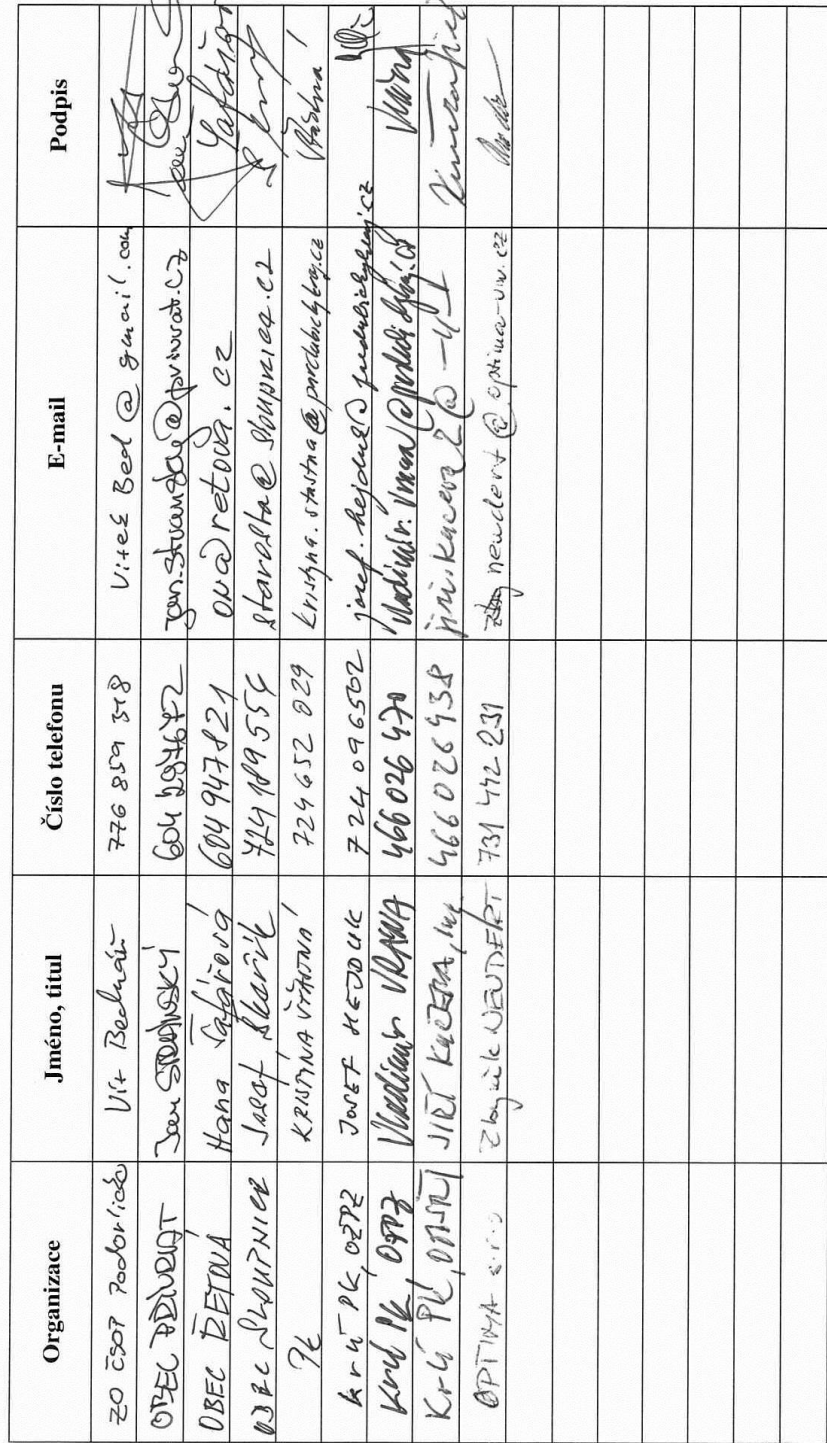 Organizace Jméno, titul Číslo telefonu E-mail Podpis
ZO ČSOP Podorlicko Vít Bednář 776 859 318 Vitek Bed @ gmail.com
OBEC PŘÍVRAT Jan STRÁNSKÝ 604 287672 jan.stransky@privrat.cz
OBEC ŘETOVÁ Hana Šafářová 604 947821 ou@retova.cz Šafářov
OBEC SLOUPNICE Josef Škeřík 724 189 554 starosta@sloupnice.cz
PK KRISTÝNA ŠŤASTNÁ 724 652 029 kristyna.stastna@pardubickykraj.cz Šťastná
KrÚ PK, OŽPZ JOSEF HEJDUK 724 096502 josef.hejduk@pardubickykraj.cz
KrÚ PK, OŽPZ Vladimír VRÁNA 466 026 470 vladimir.vrana@pardubickykraj.cz Vrána
KrÚ PK, JIŘÍ KUČERA, Ing 466 026 438 jiri.kucera2@ —"—
OPTIMA s.r.o Zbyněk NEUDERT 731 442 231 neudert@optima-vm.cz